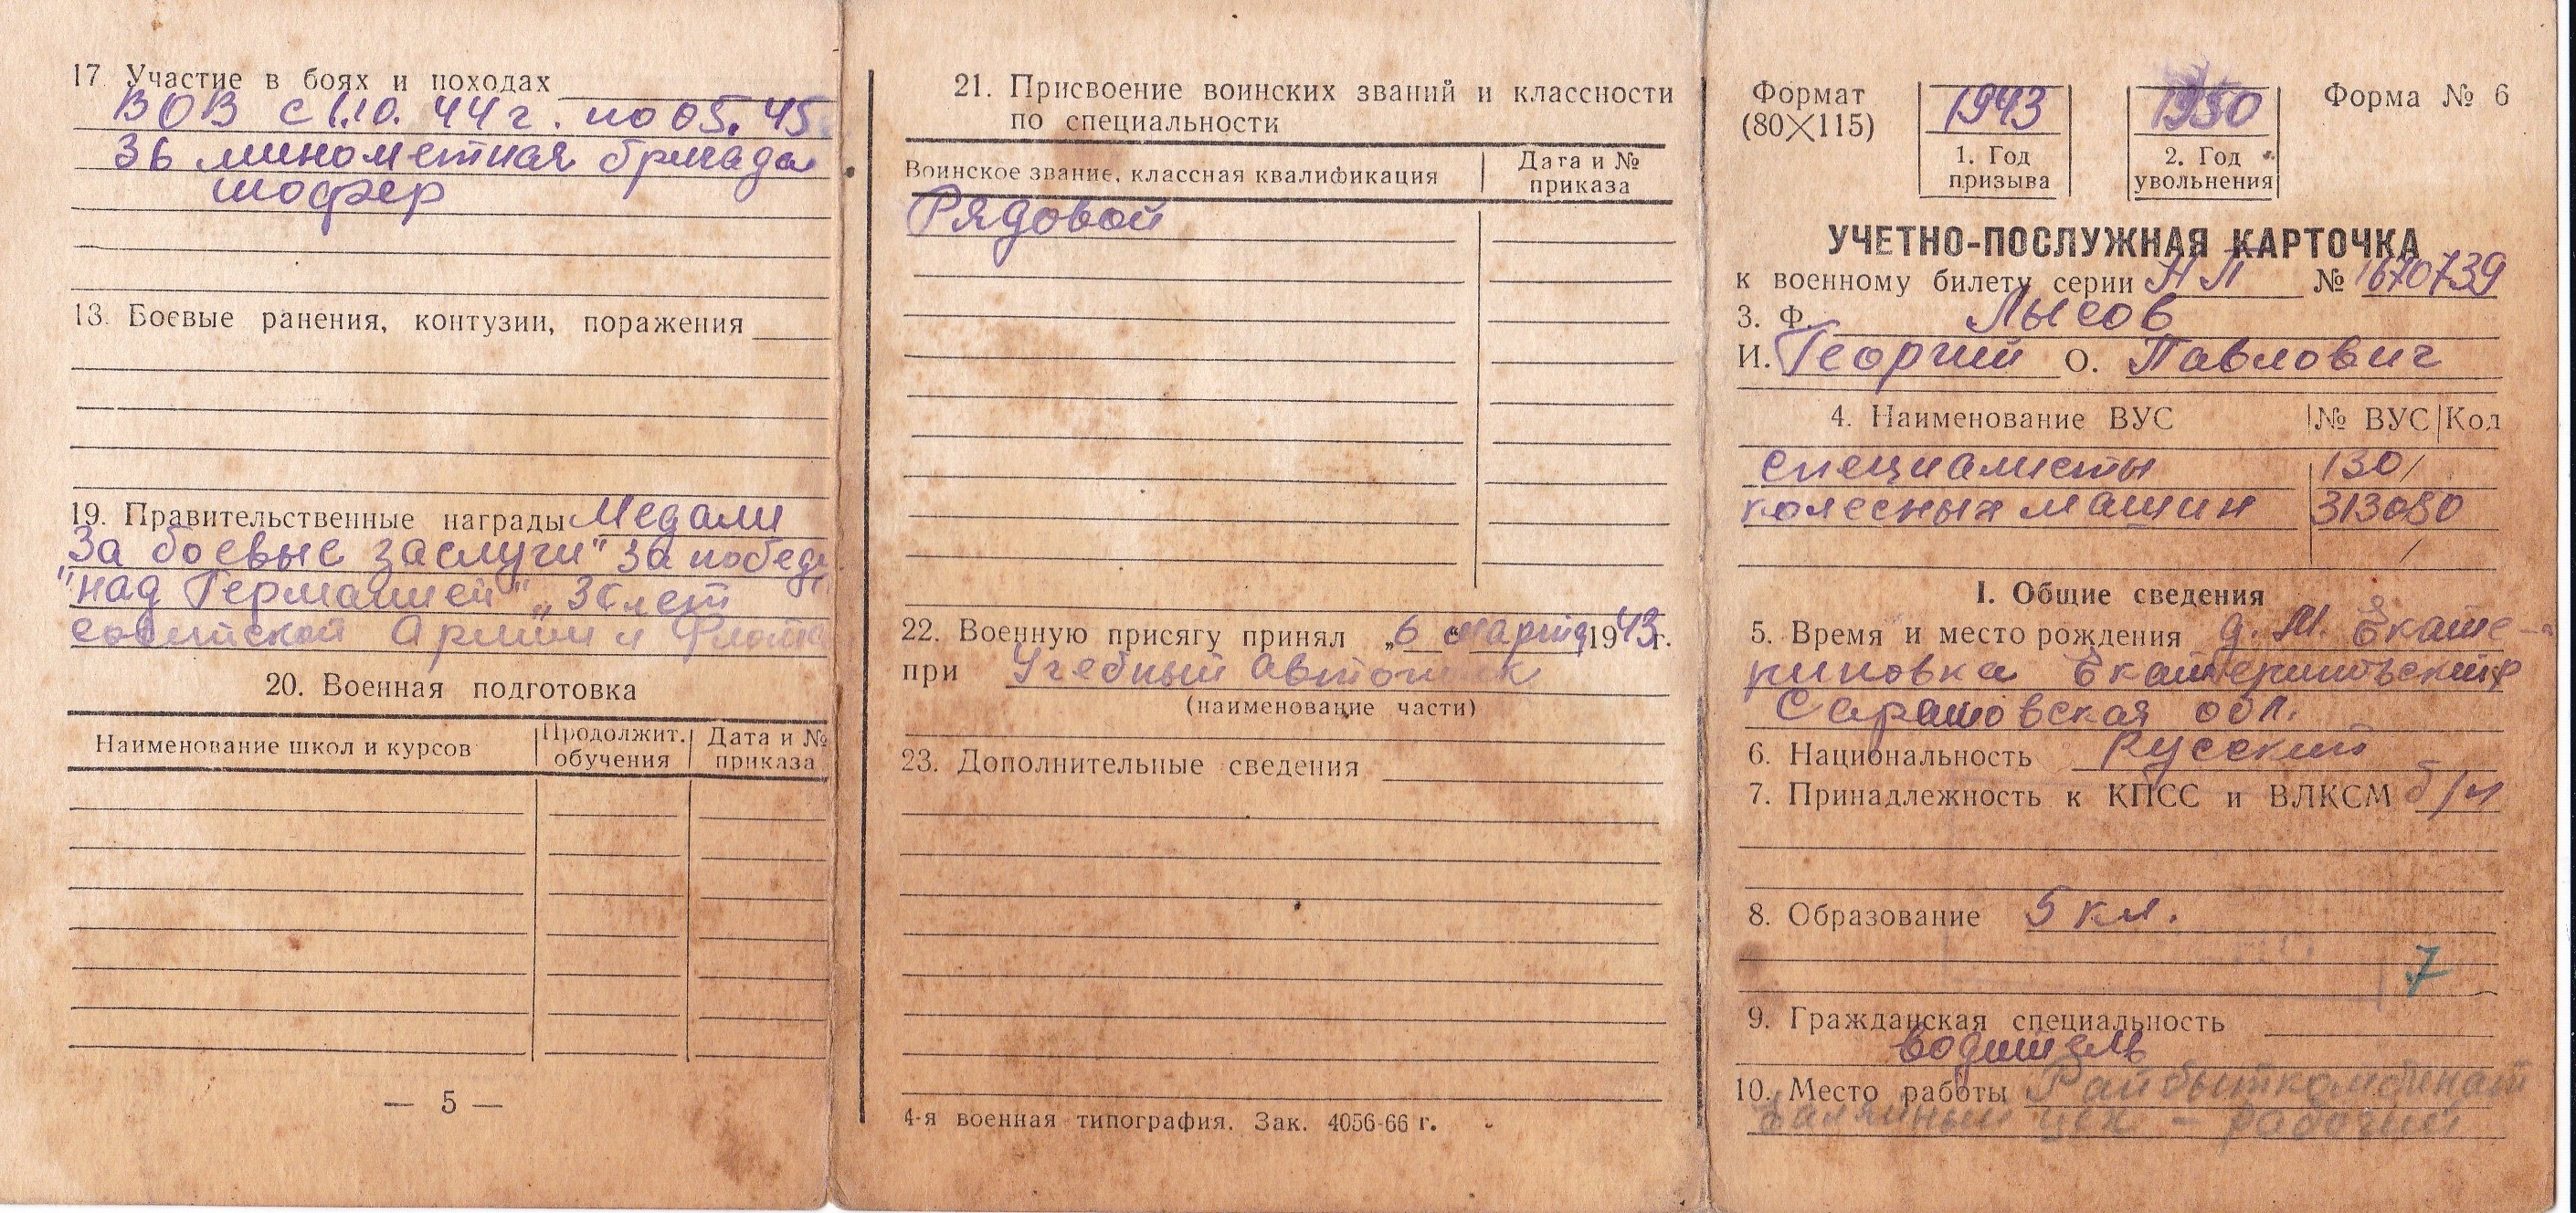 17. Участие в боях и походах
ВОВ с 1.10. 44 г. по 05. 45
36 минометная бригада
шофер
13. Боевые ранения, контузии, поражения
19. Правительственные награды Медали
"За боевые заслуги" "За победу
над Германией" „30 лет
советской Армии и Флота
20. Военная подготовка
Наименование школ и курсов Продолжит. обучения Дата и № приказа
— 5 —
21. Присвоение воинских званий и классности
по специальности
Воинское звание, классная квалификация Дата и № приказа
Рядовой
22. Военную присягу принял „6 марта 1943 г.
при Учебный
(наименование части)
23. Дополнительные сведения
4-я военная типография. Зак. 4056-66 г.
Формат
(80×115)
1943
1. Год
призыва
1950
2. Год
увольнения
Форма № 6
УЧЕТНО-ПОСЛУЖНАЯ КАРТОЧКА
к военному билету серии НЛ № 1670739
3. Ф. Лысов
И. Георгий О. Павлович
4. Наименование ВУС № ВУС Код
специалисты 130/
колесных машин 313080
I. Общие сведения
5. Время и место рождения д. М. Екате-
риновка Екатериновский р
Саратовская обл.
6. Национальность Русский
7. Принадлежность к КПСС и ВЛКСМ б/п
8. Образование 5 кл.
7
9. Гражданская специальность
водитель
10. Место работы Райбыткомбинат
цех – рабочий